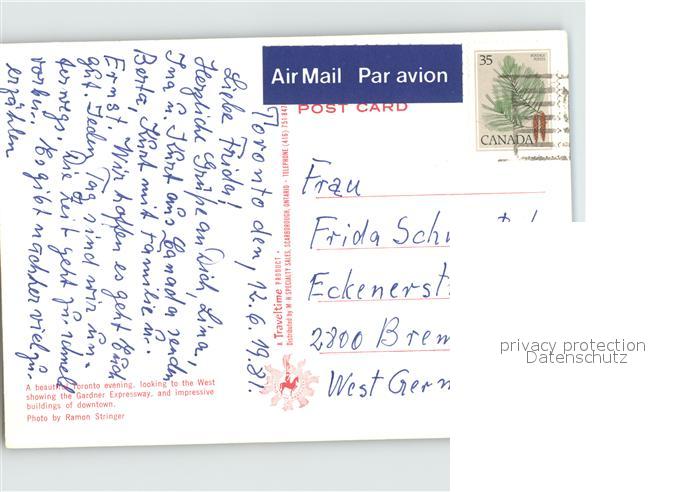 Toronto den, 12.6.1981.
Liebe Frida!
Herzliche Grüße an Dich, Lina,
Ina u. Kurt aus Canada senden
Berta, Kurt mit Familie u.
Ernst. Wir hoffen es geht Euch
gut. Jeden Tag sind wir un-
terwegs. Die Zeit geht zu schnell
vorbei. Es gibt nachher viel zu
erzählen
Air Mail Par avion
POST CARD
35
POSTAGE
POSTES
CANADA
Frau
Frida
Eckenerst
2800 Brem
West Germ
A Traveltime PRODUCT
Distributed by M·H SPECIALTY SALES, SCARBOROUGH, ONTARIO - TELEPHONE (416) 751-847
A beautiful Toronto evening, looking to the West
showing the Gardner Expressway, and impressive
buildings of downtown.
Photo by Ramon Stringer
privacy protection
Datenschutz